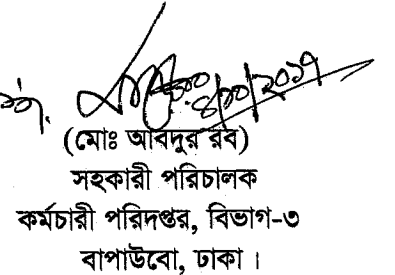 ৪/১০/২০১৭
(মোঃ আবদুর রব)
সহকারী পরিচালক
কর্মচারী পরিদপ্তর, বিভাগ-৩
বাপাউবো, ঢাকা ।